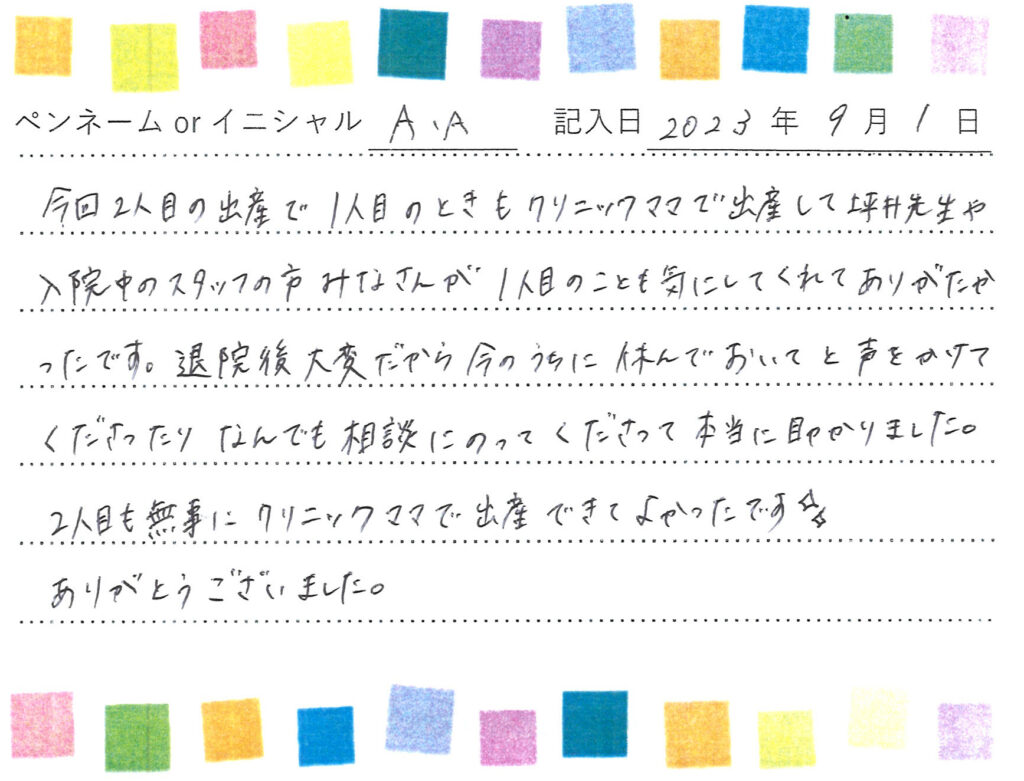 ペンネーム or イニシャル A.A 記入日 2023 年 9 月 1 日
今回2人目の出産で 1人目のときもクリニックママで出産して坪井先生や
入院中のスタッフの方みなさんが 1人目のことも気にしてくれてありがたか
ったです。退院後大変だから今のうちに休んでおいてと声をかけて
くださったり なんでも相談にのってくださって本当に助かりました。
2人目も無事にクリニックママで出産できてよかったです☆☆
ありがとうございました。